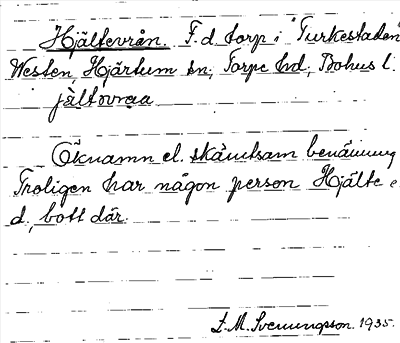 Hjältevrån. F.d. torp i "Turkestaden"
Westen, Hjärtum sn, Torpe hd, Bohus l.
jältovraa
Öknamn el. skämtsam benämning
Troligen har någon person Hjälte e
d, bott där.
L.M. Svenungsson. 1935.